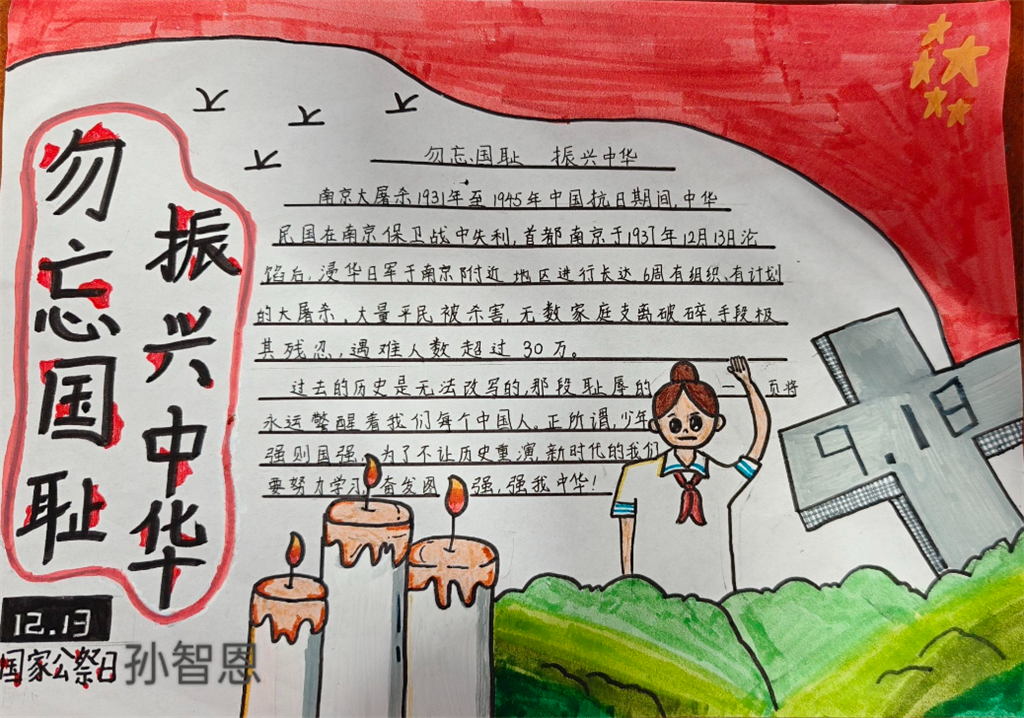 勿忘国耻
振兴中华
勿忘国耻 振兴中华
南京大屠杀1931年至1945年中国抗日期间,中华
民国在南京保卫战中失利,首都南京于1937年12月13日沦
馅后,浸华日军于南京附近地区进行长达6周有组织、有计划
的大屠杀,大量平民被杀害,无数家庭支离破碎,手段极
其残忍,遇难人数超过30万。
过去的历史是无法改写的,那段耻辱的一页将
永远警醒着我们每个中国人。正所谓,少年
强则国强,为了不让历史重演,新时代的我们
要努力学习,奋发图强,强我中华!
9.18
12.13
国家公祭日
孙智恩